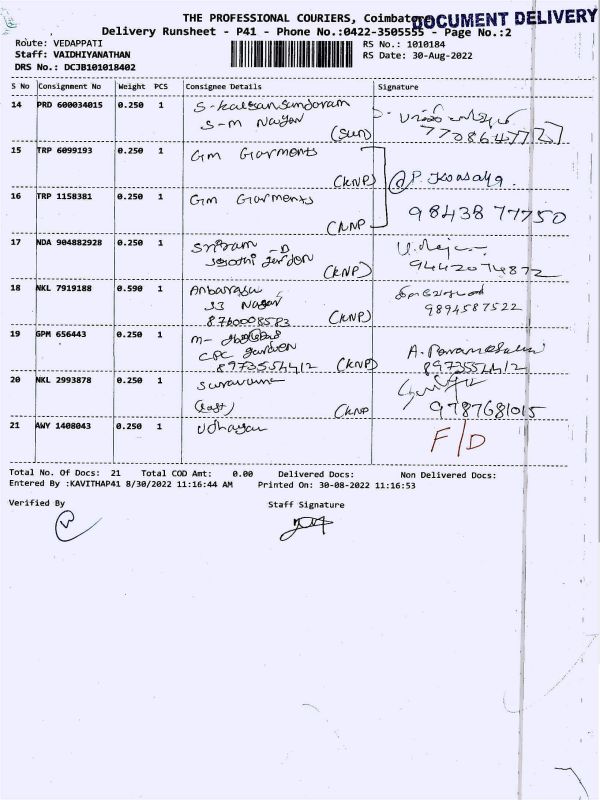 THE PROFESSIONAL COURIERS, Coimbatore
DOCUMENT DELIVERY
Delivery Runsheet - P41 - Phone No.:0422-3505555 - Page No.:2
Route: VEDAPPATI
RS No.: 1010184
Staff: VAIDHIYANATHAN
RS Date: 30-Aug-2022
DRS No.: DCJB101018402
S No Consignment No Weight PCS Consignee Details Signature
14 PRD 600034015 0.250 1 S-Kalyansundaram
S-M Nagar
(Sun)
7708647727
15 TRP 6099193 0.250 1 Gm Garments
(KNP)
16 TRP 1158381 0.250 1 Gm Garments
98438 77750
(KNP
17 NDA 904882928 0.250 1 Sriram -D
garden (KNP)
9442074872
18 NKL 7919188 0.590 1 Anbarasu
33 Nagar
9894587522
8760008583 (KNP)
19 GPM 656443 0.250 1 m-
CPC garden
8973554412 (KNP)
8973554412
20 NKL 2993878 0.250 1 Saravana
(KNP 9787681015
21 AWY 1408043 0.250 1 Udhayan
F/D
Total No. Of Docs: 21 Total COD Amt: 0.00 Delivered Docs: Non Delivered Docs:
Entered By :KAVITHAP41 8/30/2022 11:16:44 AM Printed On: 30-08-2022 11:16:53
Verified By Staff Signature